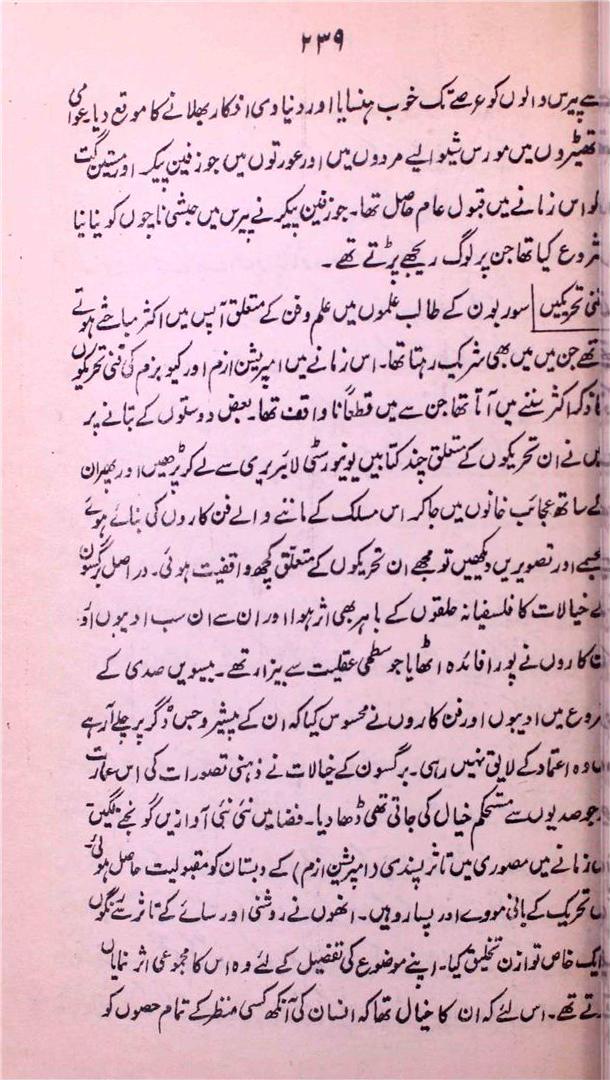 ۲۳۹
سے پیرس والوں کو عرصے تک خوب ہنسایا اور دنیاوی افکار بھلانے کا موقع دیا۔ عوامی
تھیٹروں میں مورس شیوایے مردوں میں اور عورتوں میں جوزفین بیکر اور مستین گت
کو اس زمانے میں قبول عام حاصل تھا۔ جوزفین بیکر نے پیرس میں حبشی ناچوں کو نیا نیا
شروع کیا تھا جن پر لوگ ریجھے پڑتے تھے۔
نئی تحریکیں سوربون کے طالب علموں میں علم و فن کے متعلق آپس میں اکثر مباحثے ہوتے
تھے جن میں میں بھی شریک رہتا تھا۔ اس زمانے میں امپریشن ازم اور کیوبزم کی فنی تحریکوں
کا ذکر اکثر سننے میں آتا تھا جن سے میں قطعاً ناواقف تھا۔ بعض دوستوں کے بتانے پر
میں نے ان تحریکوں کے متعلق چند کتابیں یونیورسٹی لائبریری سے لے کر پڑھیں اور پھر ان
کے ساتھ عجائب خانوں میں جا کر اس مسلک کے ماننے والے فن کاروں کی بنائے ہوئے
مجسمے اور تصویریں دیکھیں تو مجھے ان تحریکوں کے متعلق کچھ واقفیت ہوئی۔ در اصل برگسون
کے خیالات کا فلسفیانہ حلقوں کے باہر بھی اثر ہوا اور ان سے ان سب ادیبوں اور
فن کاروں نے پورا فائدہ اٹھایا جو سطحی عقلیت سے بیزار تھے۔ بیسویں صدی کے
شروع میں ادیبوں اور فن کاروں نے محسوس کیا کہ ان کے پیشرو جس ڈگر پر چلے آ رہے
ہیں وہ اعتماد کے لایق نہیں رہی۔ برگسون کے خیالات نے ذہنی تصورات کی اس عمارت
کو جو صدیوں سے مستحکم خیال کی جاتی تھی ڈھا دیا۔ فضا میں نئی نئی آوازیں گونجنے لگیں
اس زمانے میں مصوری میں تاثر پسندی (امپریشن ازم) کے دبستان کو مقبولیت حاصل ہوئی۔
اس تحریک کے بانی مووے اور پسارو ہیں۔ انھوں نے روشنی اور سائے کے تاثر سے رنگوں
کا ایک خاص توازن تخلیق کیا۔ اپنے موضوع کی تفصیل کے لئے وہ اس کا مجموعی اثر نمایاں
کرتے تھے۔ اس لئے کہ ان کا خیال تھا کہ انسان کی آنکھ کسی منظر کے تمام حصوں کو